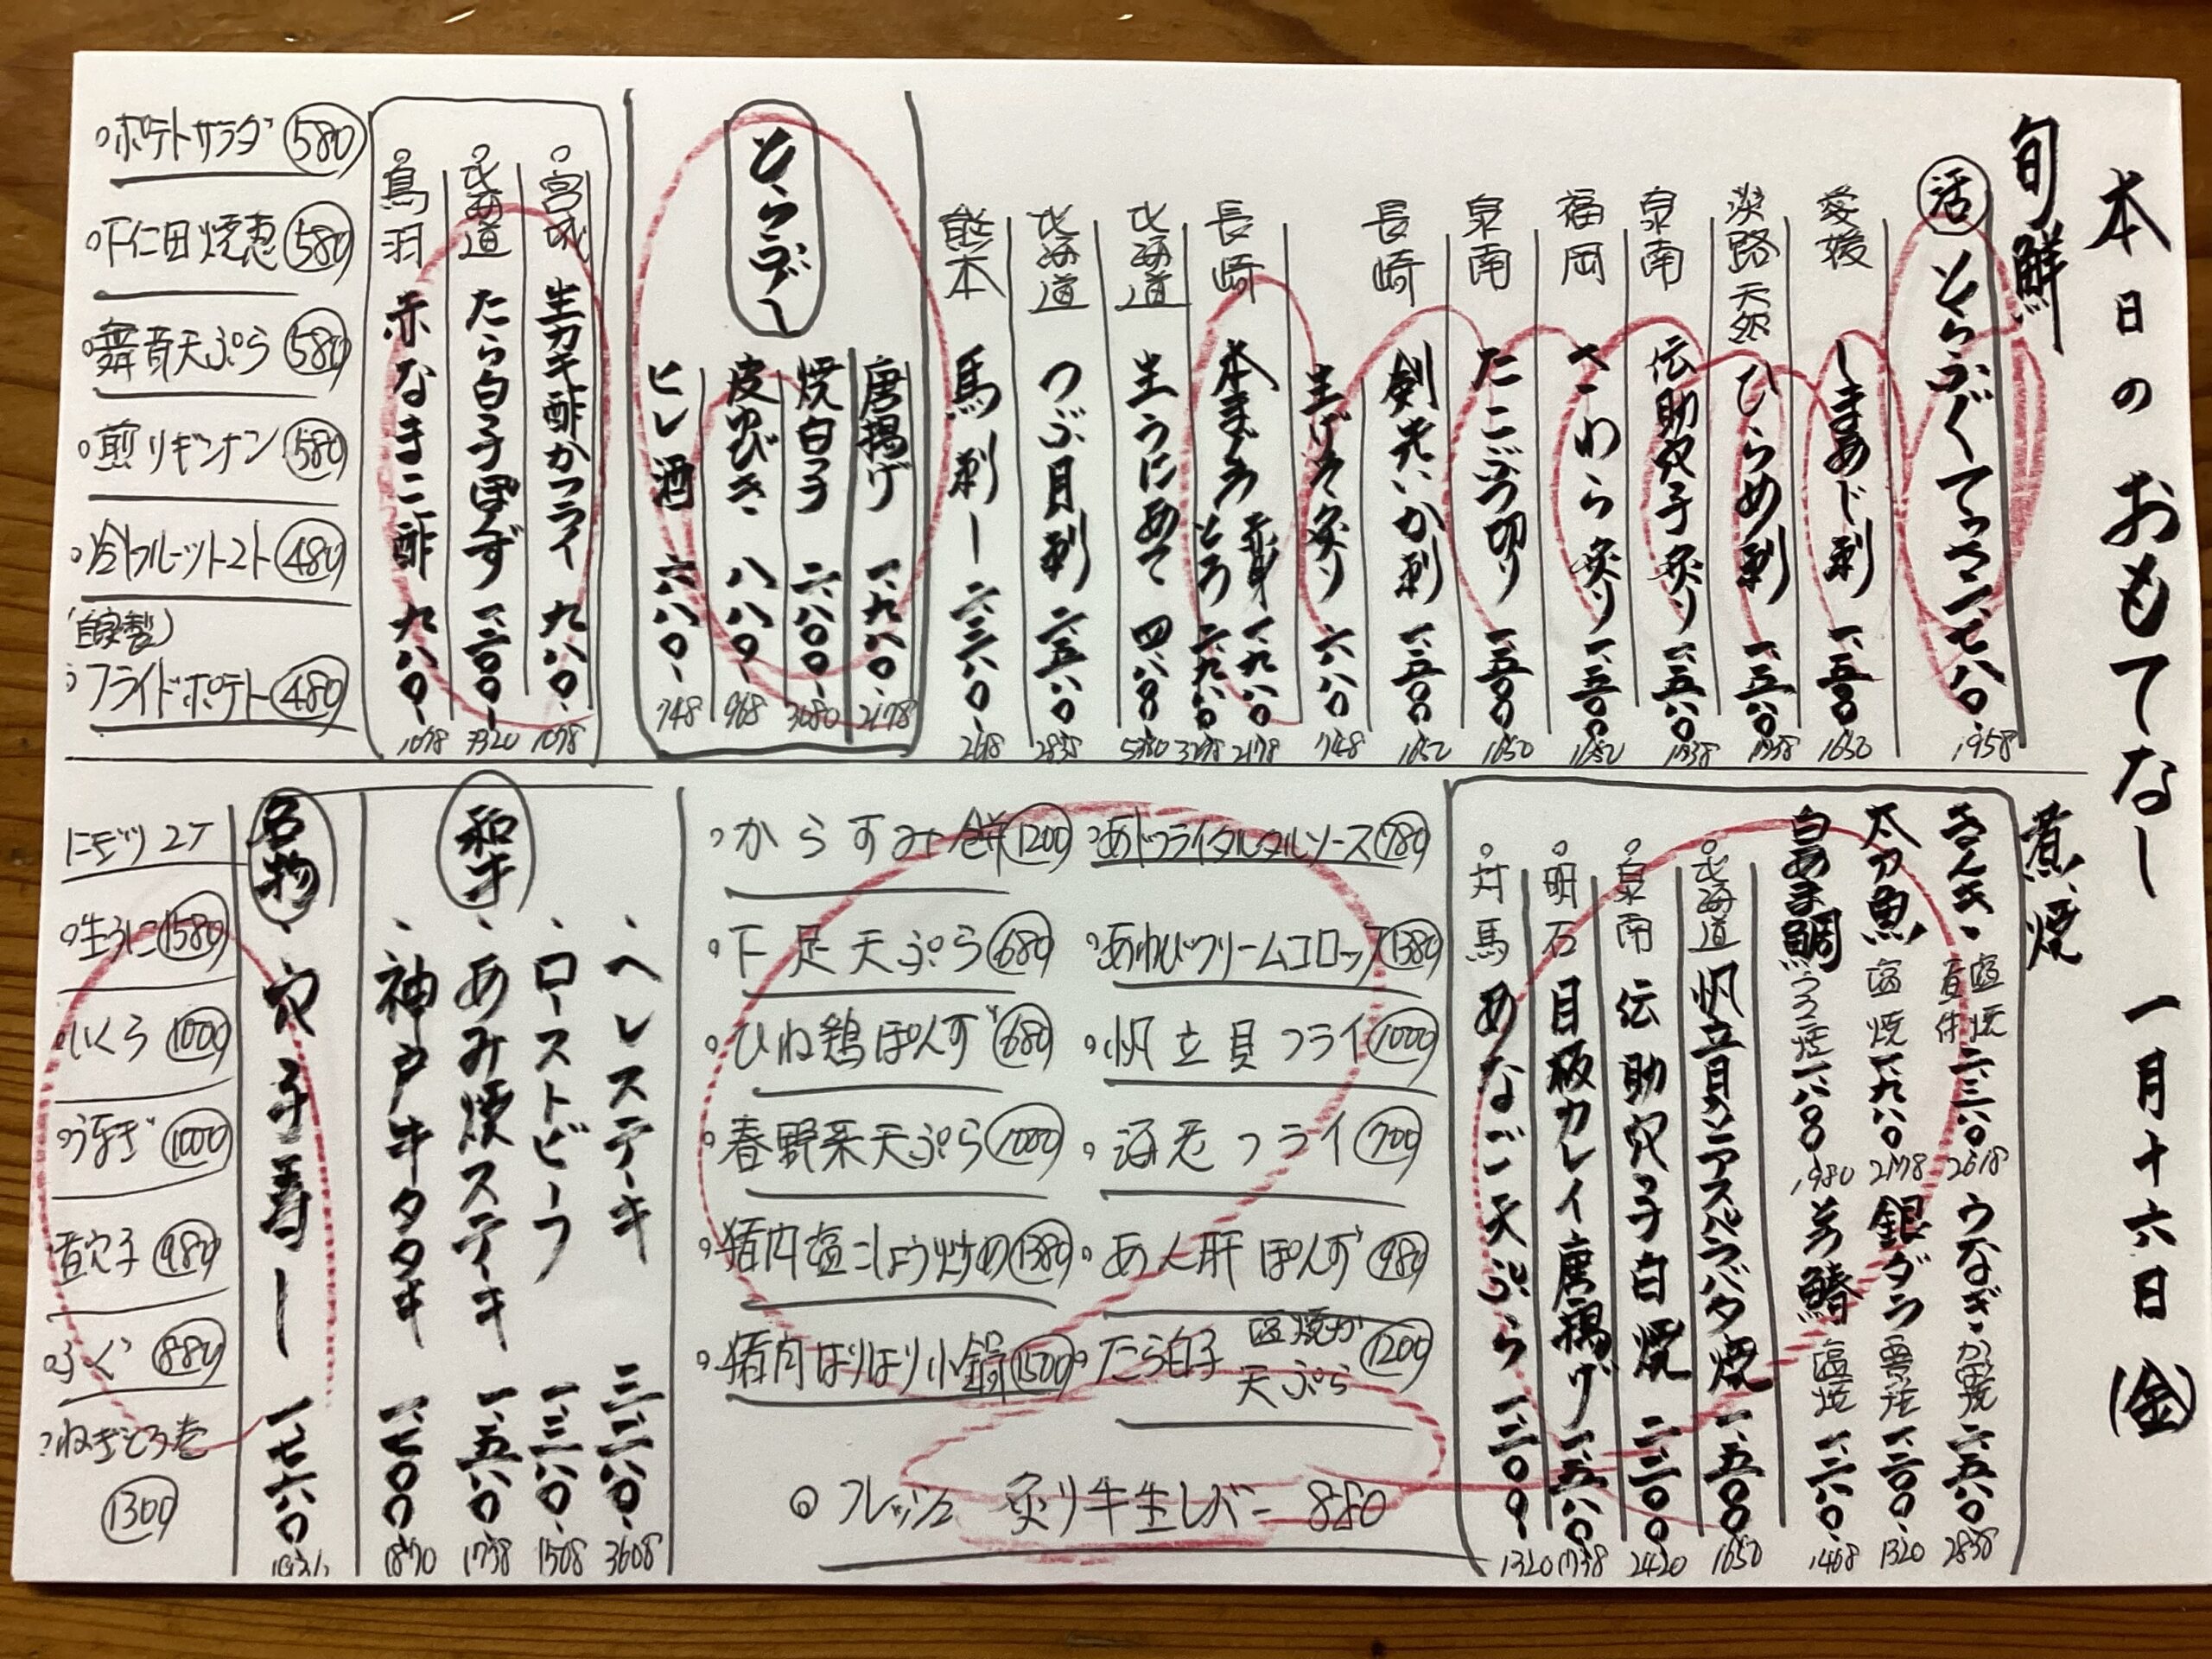 本日のおもてなし 一月十六日(金)
旬鮮
活 とらふぐてっさ 一、七八〇 1958
愛媛 しまあじ刺 一、五〇〇 1650
淡路天然 ひらめ刺 一、五八〇 1738
泉南 伝助穴子炙り 一、五八〇 1738
福岡 さわら炙り 一、五〇〇 1650
泉南 たこぶつ切り 一、五〇〇 1650
長崎 剣先いか刺 一、五〇〇 1650
生げそ炙り 六八〇 748
長崎 本まぐろ 赤身 一、九八〇 2178
とろ 二、九八〇 3278
北海道 生うにあて 四、八〇〇 5280
北海道 つぶ貝刺 二、五八〇 2838
熊本 馬刺し 二、三八〇 2618
とらふぐ
唐揚げ 一、九八〇 2178
焼白子 二、八〇〇 3080
皮ゆびき 八八〇 968
ヒレ酒 六八〇 748
宮城 生カキ酢かフライ 九八〇 1078
北海道 たら白子ぽんず 一、二〇〇 1320
鳥羽 赤なまこ酢 九八〇 1078
ポテトサラダ 580
下仁田焼葱 580
舞茸天ぷら 580
煎りギンナン 580
冷フルーツトマト 480
(自家製)
フライドポテト 480
煮・焼
きんき 塩焼 煮付 二、三八〇 2618
うなぎ かば焼 二、五八〇 2838
太刀魚 塩焼 一、九八〇 2178
銀ダラ 一、二〇〇 1320
白あま鯛 うろこ焼 一、八〇〇 1980
鰆 塩焼 1408
北海道 帆立貝アスパラバタ焼 一、五〇〇 1650
泉南 伝助穴子白焼 二、二〇〇 2420
明石 目板カレイ唐揚げ 一、五八〇 1738
対馬 あなご天ぷら 一、二〇〇 1320
あじフライタルタルソース 780
あわびクリームコロッケ 1380
帆立貝フライ 1000
海老フライ 700
あん肝ぽんず 980
たら白子 塩焼か 天ぷら 1200
からすみ餅 1200
下足天ぷら 680
ひね鶏ぽんず 680
春野菜天ぷら 1000
猪肉塩こしょう炒め 1380
猪肉はりはり小鍋 1500
フレッシュ 炙り牛生レバー 880
和牛
ヘレステーキ 三、二八〇 3608
ローストビーフ 1508
あみ焼ステーキ 一、五八〇 1738
神戸牛タタキ 一、七〇〇 1870
名物
穴子寿し 一、六六〇
にぎり2ケ
生うに 1580
いくら 1000
うなぎ 1000
煮穴子 980
ふぐ 880
ねぎとろ巻
1300